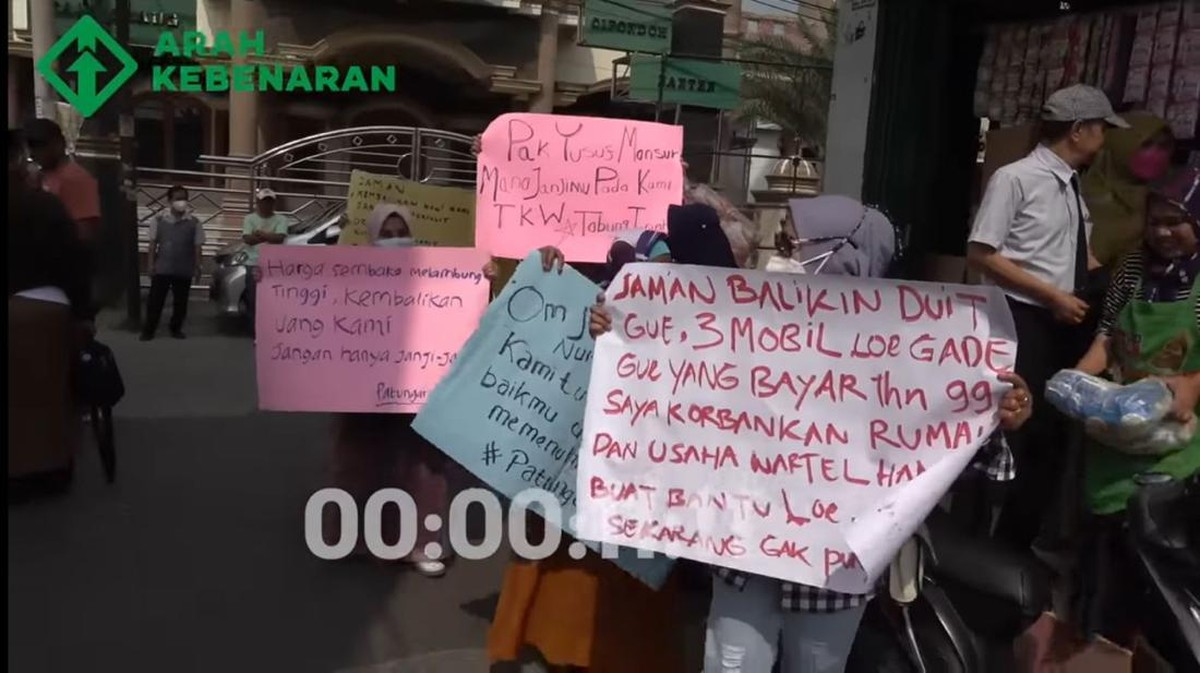 ARAH
KEBENARAN
CIPONDOH
BANTEN
Pak Yusus Mansur
Mana Janjimu Pada Kami
TKW
Tabung
JAMAN
Harga sembako melambung
Tinggi, Kembalikan
uang Kami
Jangan hanya janji-ja
Patungan
Om J
Nu
Kami tu
baikmu
memenu
# Patung
JAMAN BALIKIN DUIT
GUE, 3 MOBIL Loe GADE
GUE YANG BAYAR thn 99
SAYA KORBANKAN RUMA
DAN USAHA WARTEL HA
BUAT BANTU Loe.
SEKARANG GAK pu
00:00: